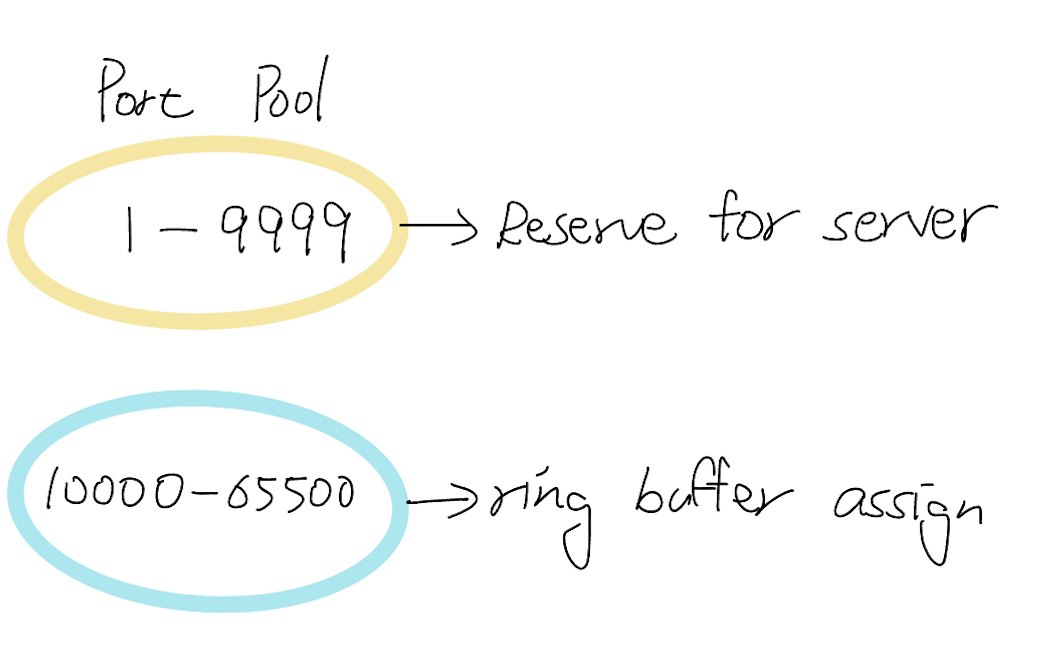 Port Pool
1 - 9999 → Reserve for server
10000-65500 → ring buffer assign